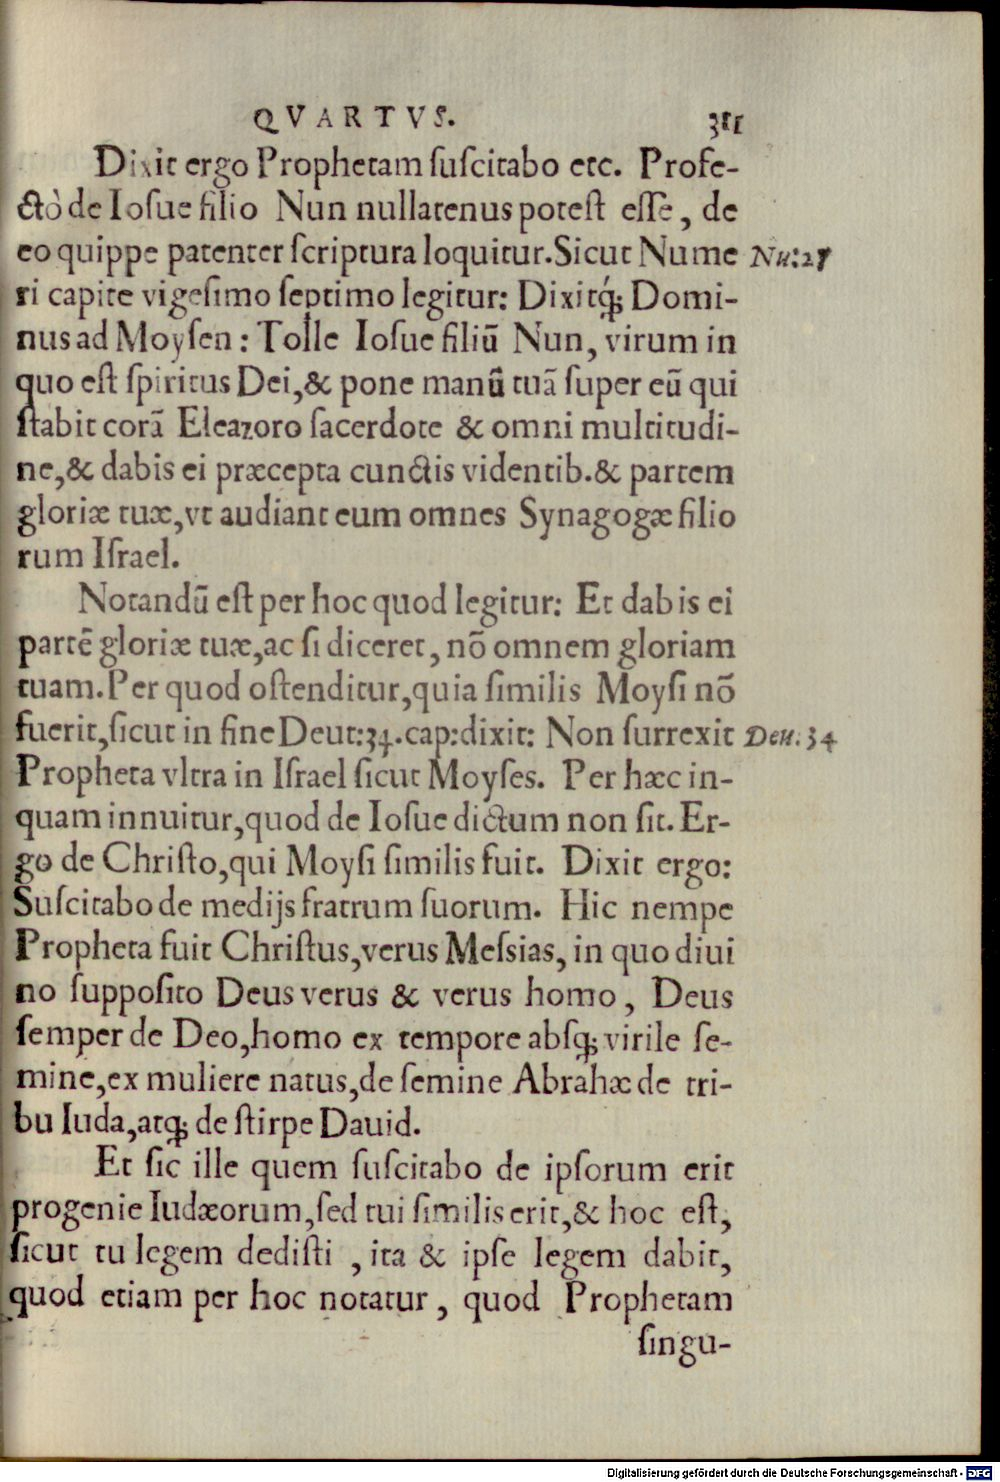 QVARTVS. 311
Dixit ergo Prophetam ſuſcitabo etc. Profe-
ctò de Ioſue filio Nun nullatenus poteſt eſſe, de
eo quippe patenter ſcriptura loquitur. Sicut Nume Nu: 27
ri capite vigeſimo ſeptimo legitur: Dixitq́; Domi-
nus ad Moyſen: Tolle Ioſue filiũ Nun, virum in
quo eſt ſpiritus Dei, & pone manũ tuã ſuper eũ qui
ſtabit corã Eleazoro ſacerdote & omni multitudi-
ne, & dabis ei præcepta cunctis videntib. & partem
gloriæ tuæ, vt audiant eum omnes Synagogæ filio
rum Iſrael.
Notandũ eſt per hoc quod legitur: Et dabis ei
partẽ gloriæ tuæ, ac ſi diceret, nõ omnem gloriam
tuam. Per quod oſtenditur, quia ſimilis Moyſi nõ
fuerit, ſicut in fine Deut: 34. cap: dixit: Non ſurrexit Deu. 34
Propheta vltra in Iſrael ſicut Moyſes. Per hæc in-
quam innuitur, quod de Ioſue dictum non ſit. Er-
go de Chriſto, qui Moyſi ſimilis fuit. Dixit ergo:
Suſcitabo de medijs fratrum ſuorum. Hic nempe
Propheta fuit Chriſtus, verus Meſsias, in quo diui
no ſuppoſito Deus verus & verus homo, Deus
ſemper de Deo, homo ex tempore abſq; virile ſe-
mine, ex muliere natus, de ſemine Abrahæ de tri-
bu Iuda, atq; de ſtirpe Dauid.
Et ſic ille quem ſuſcitabo de ipſorum erit
progenie Iudæorum, ſed tui ſimilis erit, & hoc eſt,
ſicut tu legem dediſti, ita & ipſe legem dabit,
quod etiam per hoc notatur, quod Prophetam
ſingu-
Digitalisierung gefördert durch die Deutsche Forschungsgemeinschaft - DFG